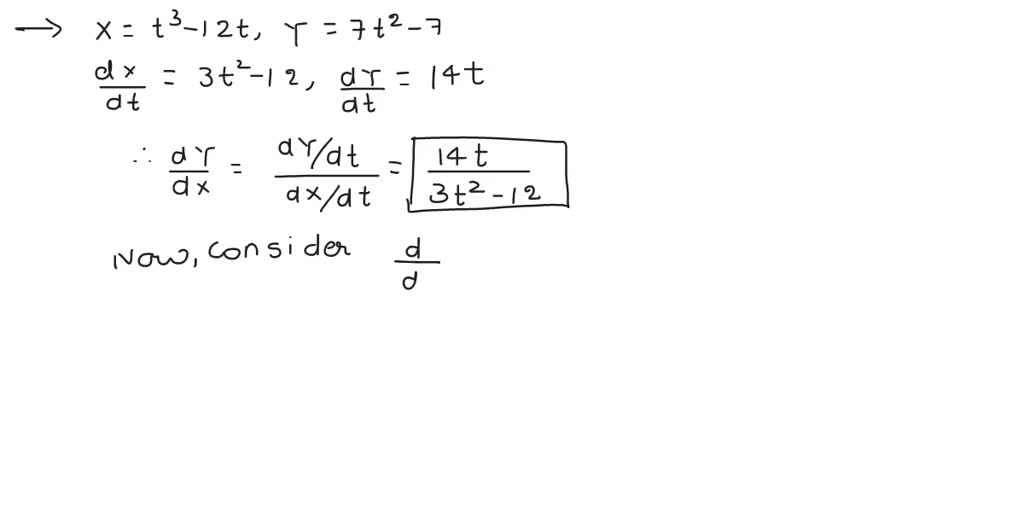 → x = t³-12t, Y = 7t²-7
dx/dt = 3t²-12, dY/dt = 14t
∴ dY/dx = (dY/dt)/(dx/dt) = 14t/(3t²-12)
Now, consider d/d